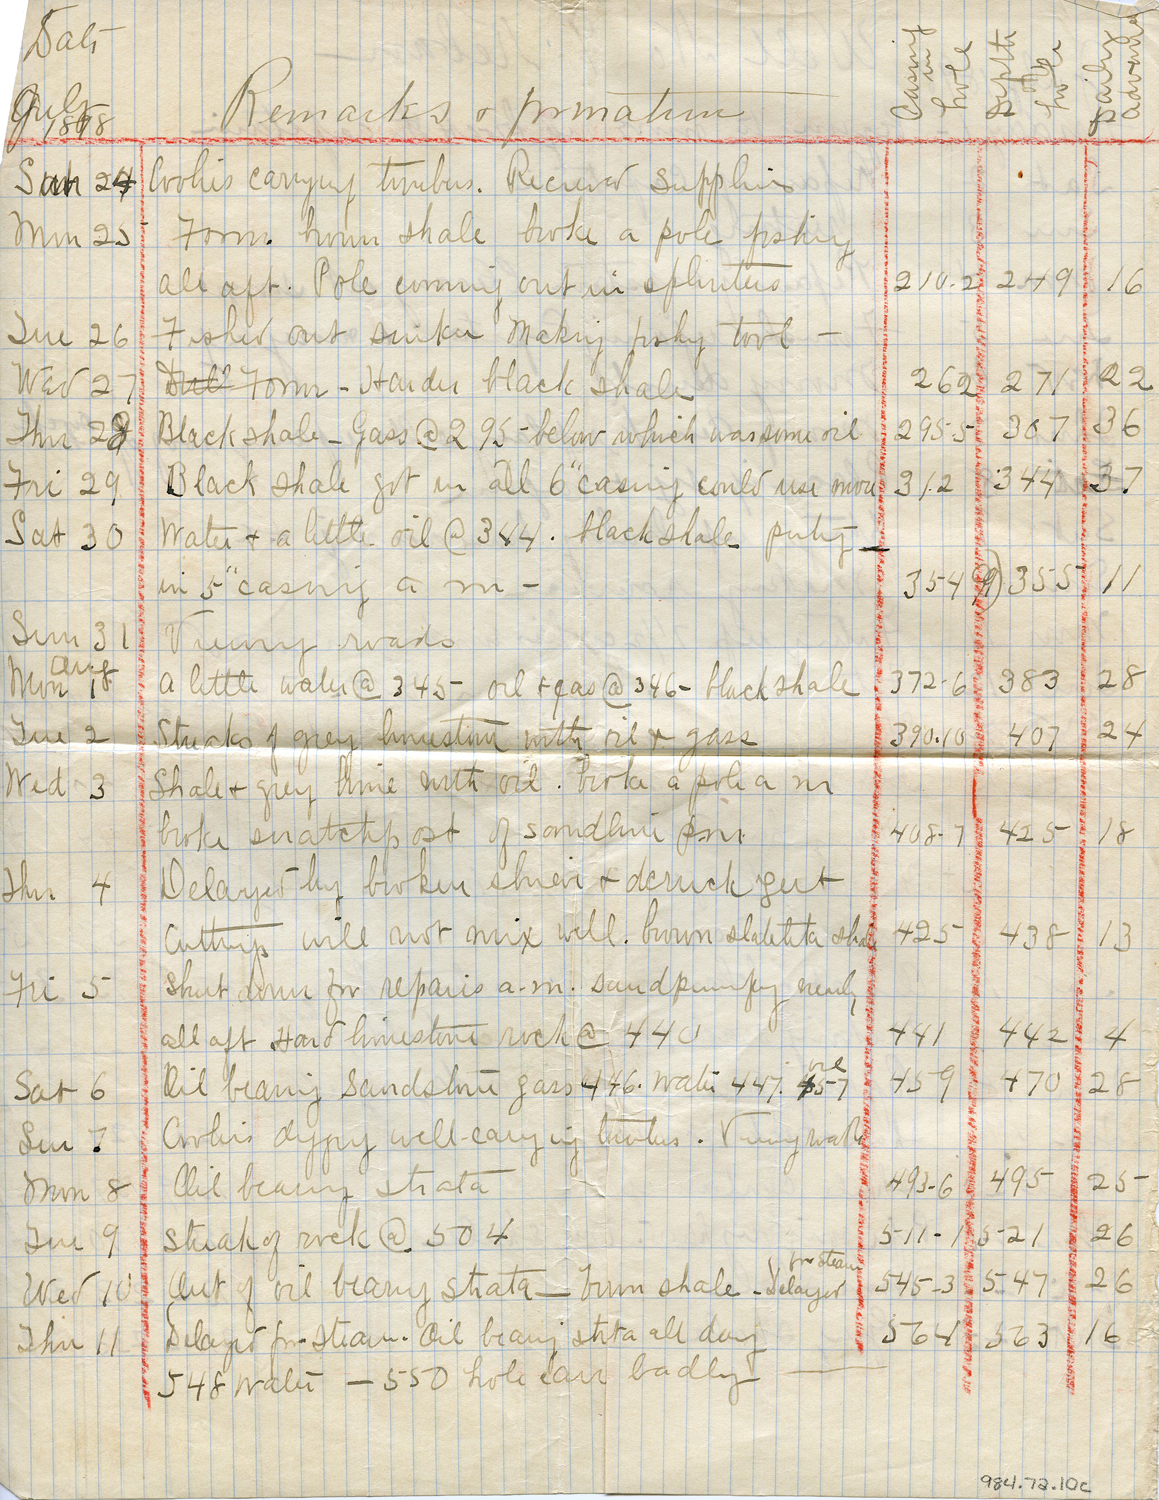 Date
July 1898
Remarks & formation
Casing in hole
Depth of hole
Daily advance
Sun 24 Coolies carrying timbers. Recieved supplies
Mon 25 Form. brown shale broke a pole fishing
all aft. Pole coming out in splinters 210.2 249 16
Tue 26 Fished out sinker Making fishg tool –
Wed 27 Form – Harder black shale 262 271 22
Thu 28 Black shale – Gass @ 295 – below which was some oil 295 5 307 36
Fri 29 Black shale got in all 6" casing could use more 312 344 37
Sat 30 Water & a little oil @ 344. black shale putg
in 5" casing a m – 354 355 11
Sun 31 Viewing roads
Mon Aug 1 98 a little water @ 345 – oil & gas @ 346 – black shale 372-6 383 28
Tue 2 Streaks of grey limestone with oil & gass 390.10 407 24
Wed 3 Shale & grey lime with oil. broke a pole a m
broke snatchpost of sandline p m. 408-7 425 18
Thu 4 Delayed by broken shieve & derrick geet
Cuttings will not mix well. brown shale 425 438 13
Fri 5 Shut down for repairs a-m. sandpumpg nearly
all aft Hard limestone rock @ 440 441 442 4
Sat 6 Oil bearing Sandstone gass 446. water 447. oil 457 459 470 28
Sun 7 Coolies digging well – carrying timbers. Viewing
Mon 8 Oil bearing strata 493-6 495 25
Tue 9 Streak of rock @ 504 511-1 521 26
Wed 10 Out of oil bearing strata – brown shale – Delayed for steam 545-3 547 26
Thu 11 Delayed for steam. Oil bearing strata all day 564 563 16
548 water – 550 hole cave badly
984.72.10c